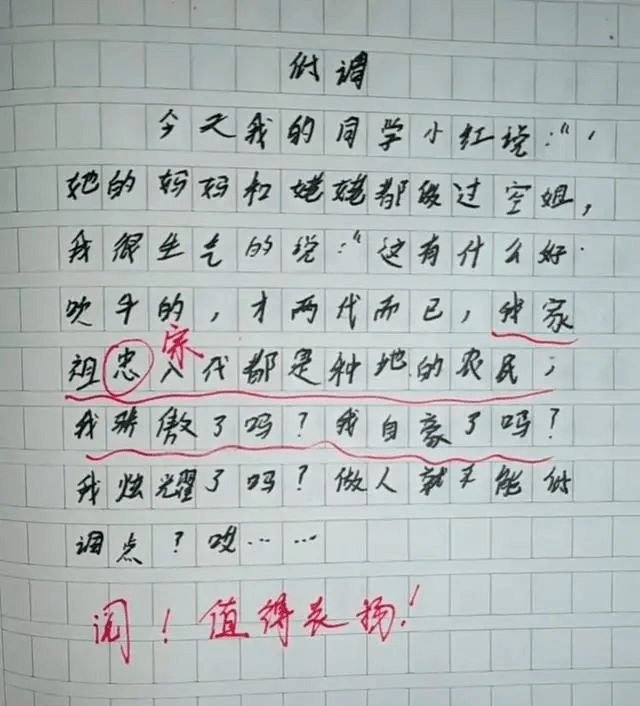 低调
今天我的同学小红说：“
她的妈妈和姥姥都做过空姐，
我很生气的说：“这有什么好
吹牛的，才两代而已，我家
宗
祖忠八代都是种地的农民，
我骄傲了吗？我自豪了吗？
我炫耀了吗？做人就不能低
调点？哎……
阅！值得表扬！